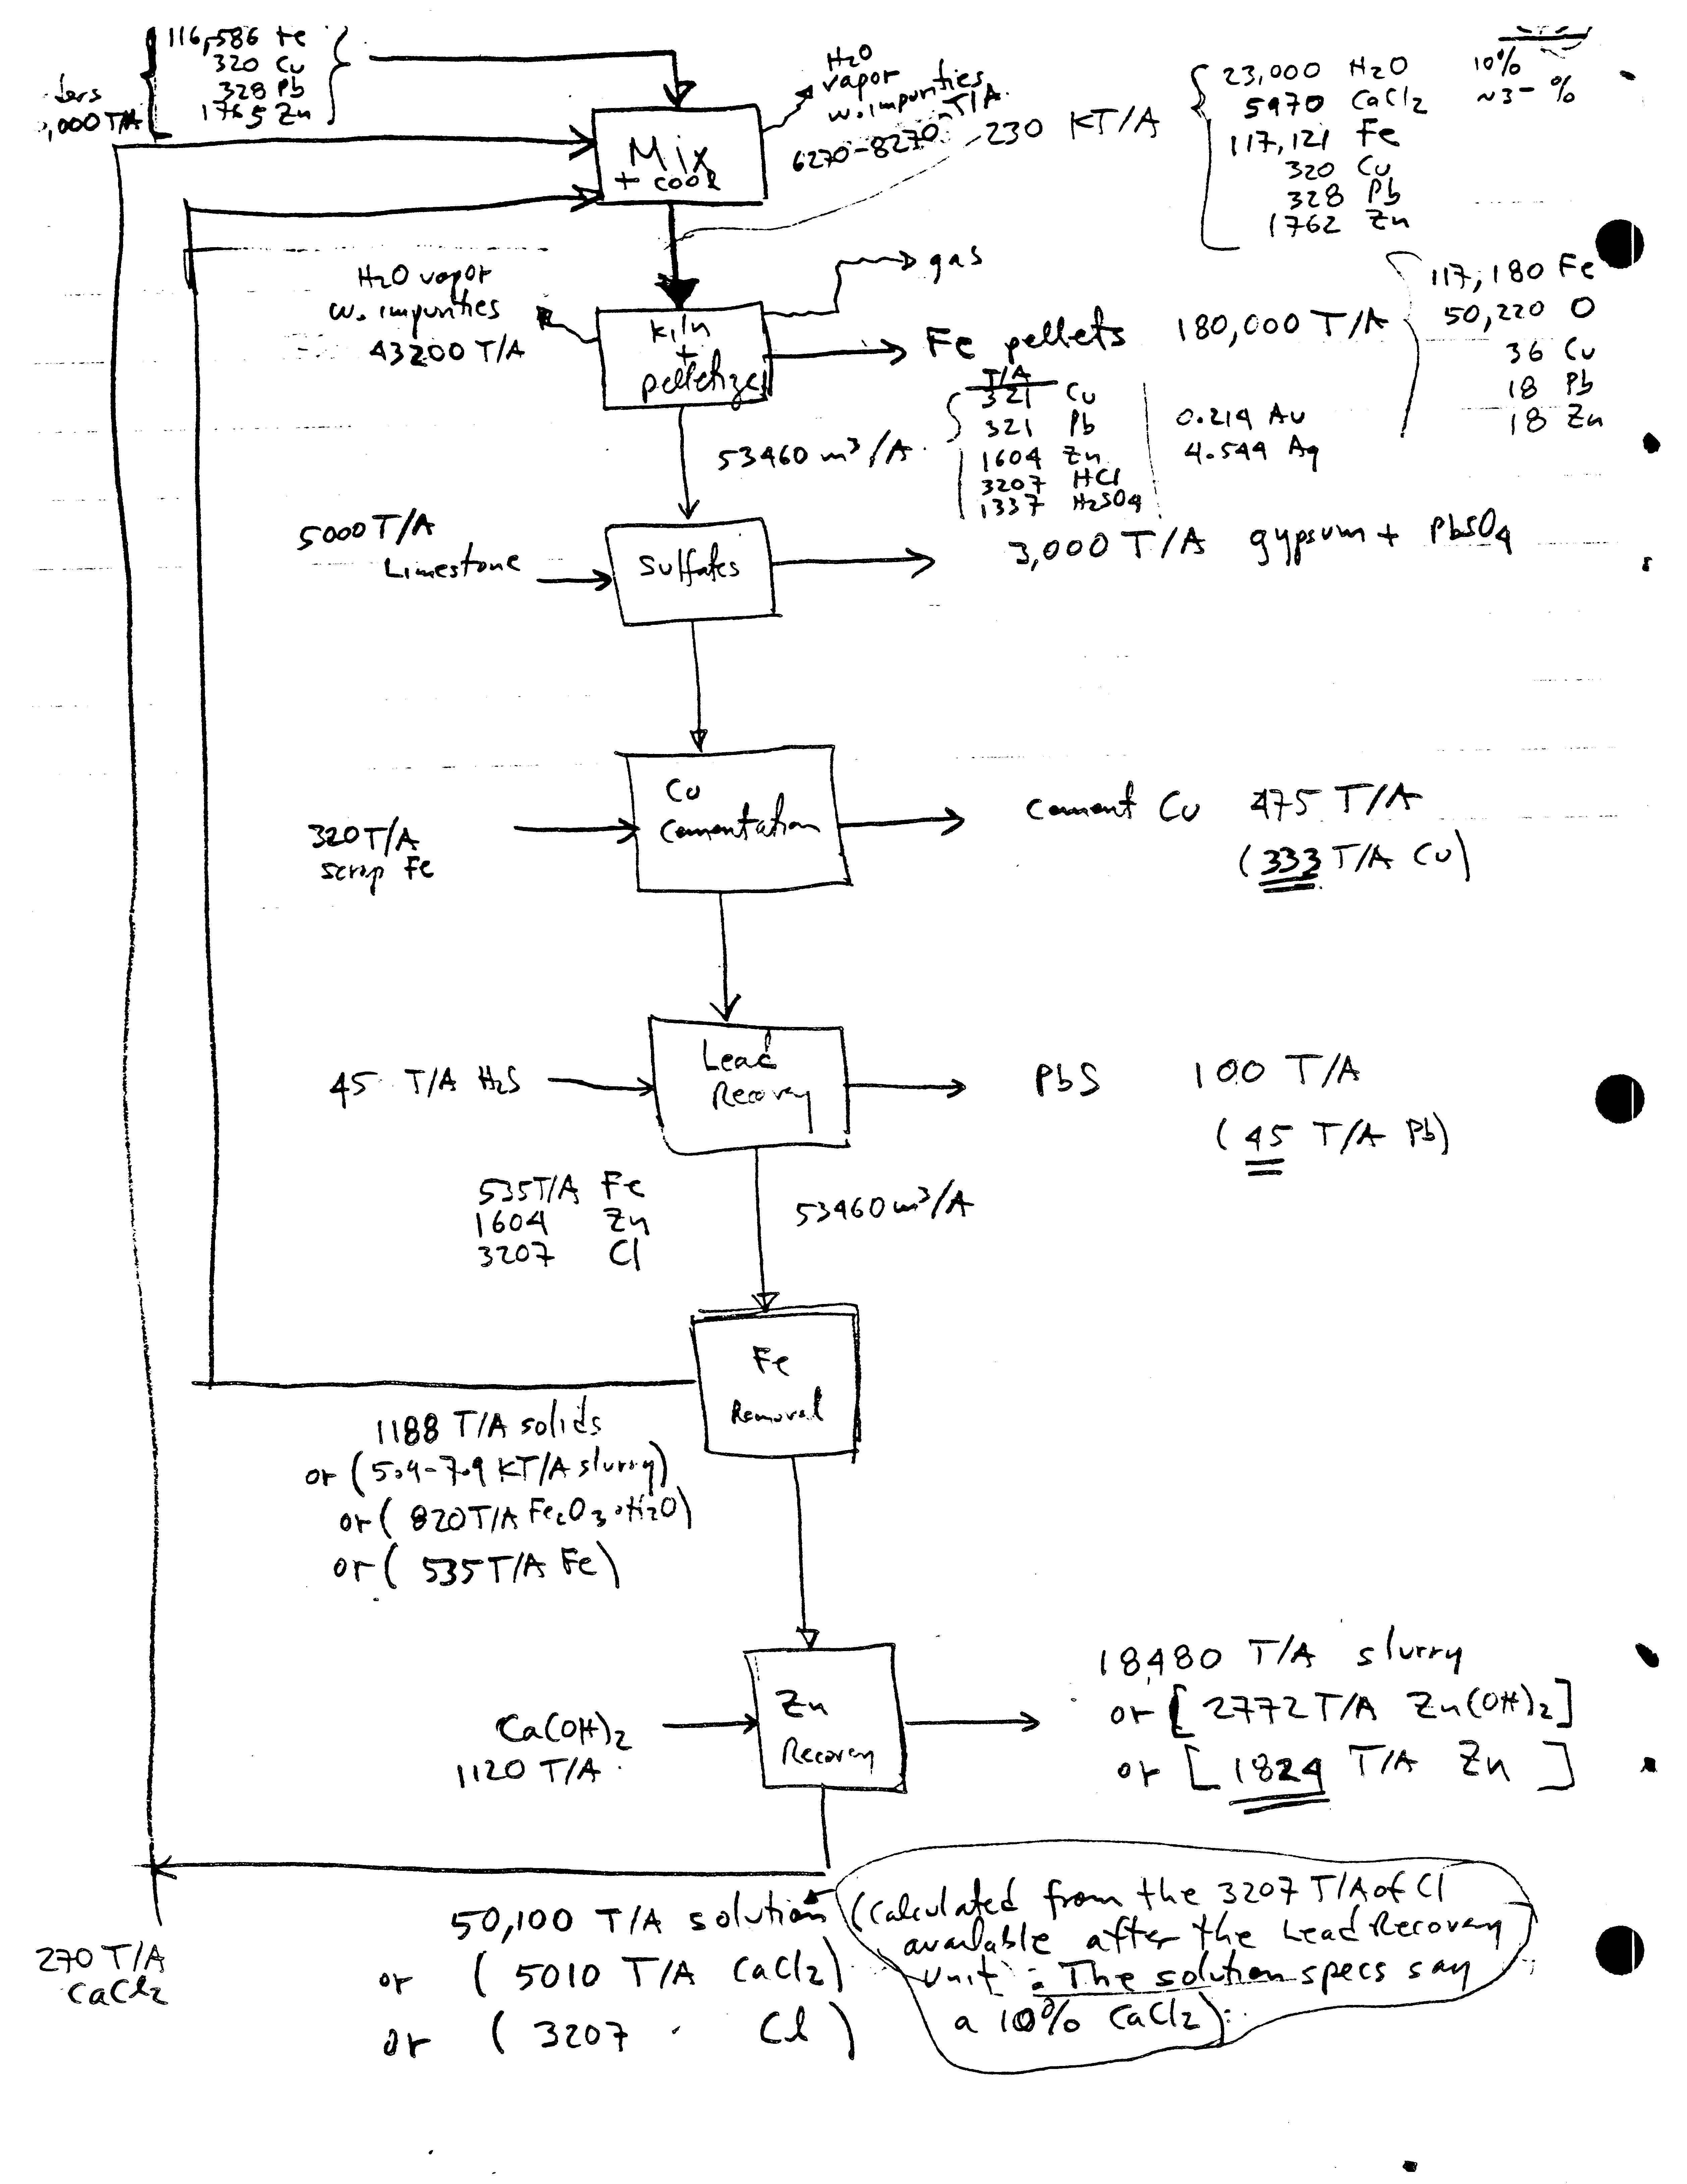 116,586 Fe
320 Cu
328 Pb
1765 Zn
,000 T/A
Mix
+ cool
H2O
vapor
w. impurities
6270-8270 T/A.
230 KT/A
23,000 H2O 10%
5970 CaCl2 ~3- %
117,121 Fe
320 Cu
328 Pb
1762 Zn
H2O vapor
w. impurities
43200 T/A
kiln
+
pelletize
gas
Fe pellets 180,000 T/A
117,180 Fe
50,220 O
36 Cu
18 Pb
18 Zn
53460 m³/A.
T/A
321 Cu
321 Pb
1604 Zn
3207 HCl
1337 H2SO4
0.214 Au
4.544 Ag
5000 T/A
Limestone
Sulfates
3,000 T/A gypsum + PbSO4
320 T/A
scrap Fe
Cu
Cementation
cement Cu 475 T/A
(333 T/A Cu)
45 T/A H2S
Lead
Recovery
PbS 100 T/A
(45 T/A Pb)
535 T/A Fe
1604 Zn
3207 Cl
53460 m³/A
Fe
Removal
1188 T/A solids
or (5.4-7.9 KT/A slurry)
or (820 T/A Fe2O3·H2O)
or (535 T/A Fe)
Ca(OH)2
1120 T/A.
Zn
Recovery
18,480 T/A slurry
or [2772 T/A Zn(OH)2]
or [1824 T/A Zn]
270 T/A
CaCl2
50,100 T/A solution
or (5010 T/A CaCl2)
or (3207 · Cl)
(calculated from the 3207 T/A of Cl
available after the Lead Recovery
unit. The solution specs say
a 10% CaCl2).